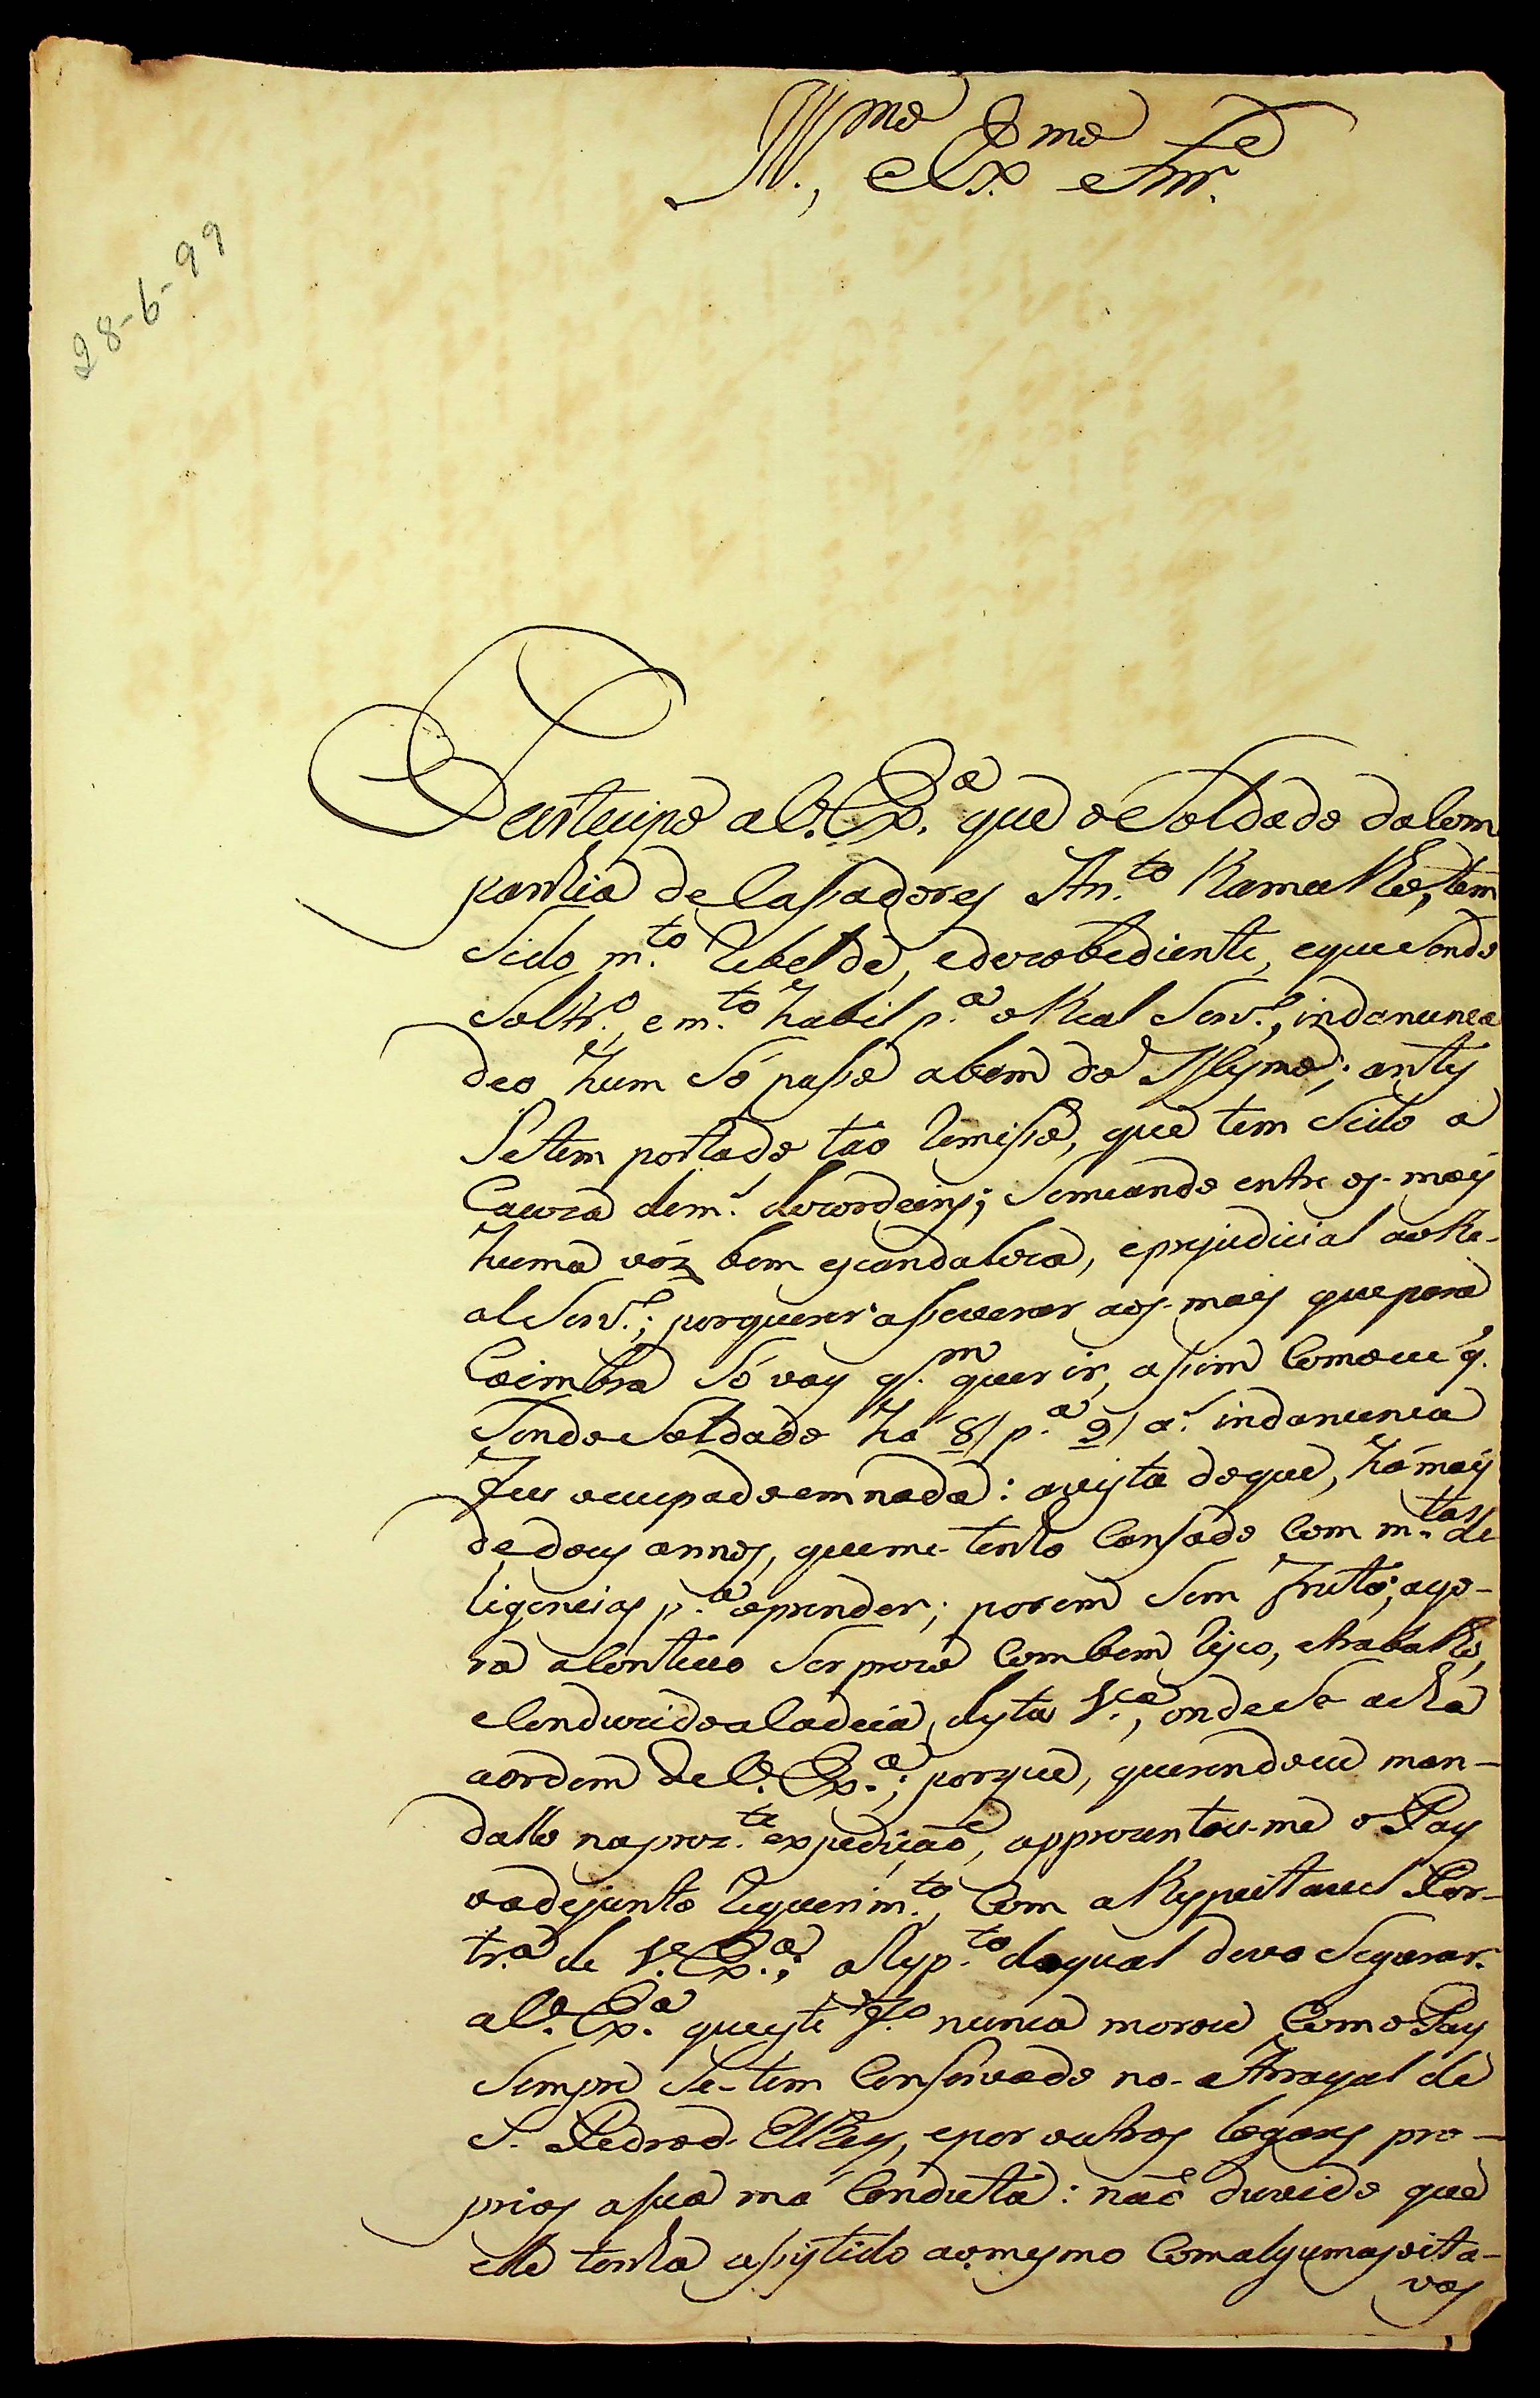 Ill.mo, e Ex.mo Snr.
28-6-99
Partecipo a V. Ex.a que o Soldado da Com
panhia de Cassadores An.to Ramalho, tem
Sido m.to Rebelde, e dezobediente, e que Sendo
Soltr.o, e m.to habil p.a o Real Serv.o, inda nunca
deo hum Só passo a bem do Mesmo; antes
Se tem portado tão Remisso, que tem Sido a
Cauza de m.s dezordeins; Semeando entre os mais
huma vóz bem escandaloza, e prejudicial ao Re-
al Serv.o; por querer asseverar aos mais que para
Coimbra Só vay q.m quer ir, assim Como eu q.
Sendo Soldado há 8/ p.a 9/ a.s inda nunca
fui ocupado em nada: a vista do que, há mais
de dous annos, que me tenho Cansado Com m.tas de
ligencias p.a o prender; porem Sem fruto; ago-
ra aConteceo Ser prezo Com bem Risco, e trabalho,
e Conduzido a Cadeia desta V.a, onde Se acha
a ordem de V. Ex.a; porque, querendo eu man-
dallo na prez.te expedição, apprezentou-me o Pay
o adejunto Requerim.to, Com a Respeitavel Por-
tr.a de V. Ex.a; a Resp.to da qual devo Segurar
a V. Ex.a que este f.o nunca morou Com o Pay
Sempre Se tem Conservado no Arrayal de
S. Pedro d. ElRey, e por outros logares pro-
prios a sua má Conduta: não duvido que
elle tenha assistido ao mesmo Com algumas oita-
vas